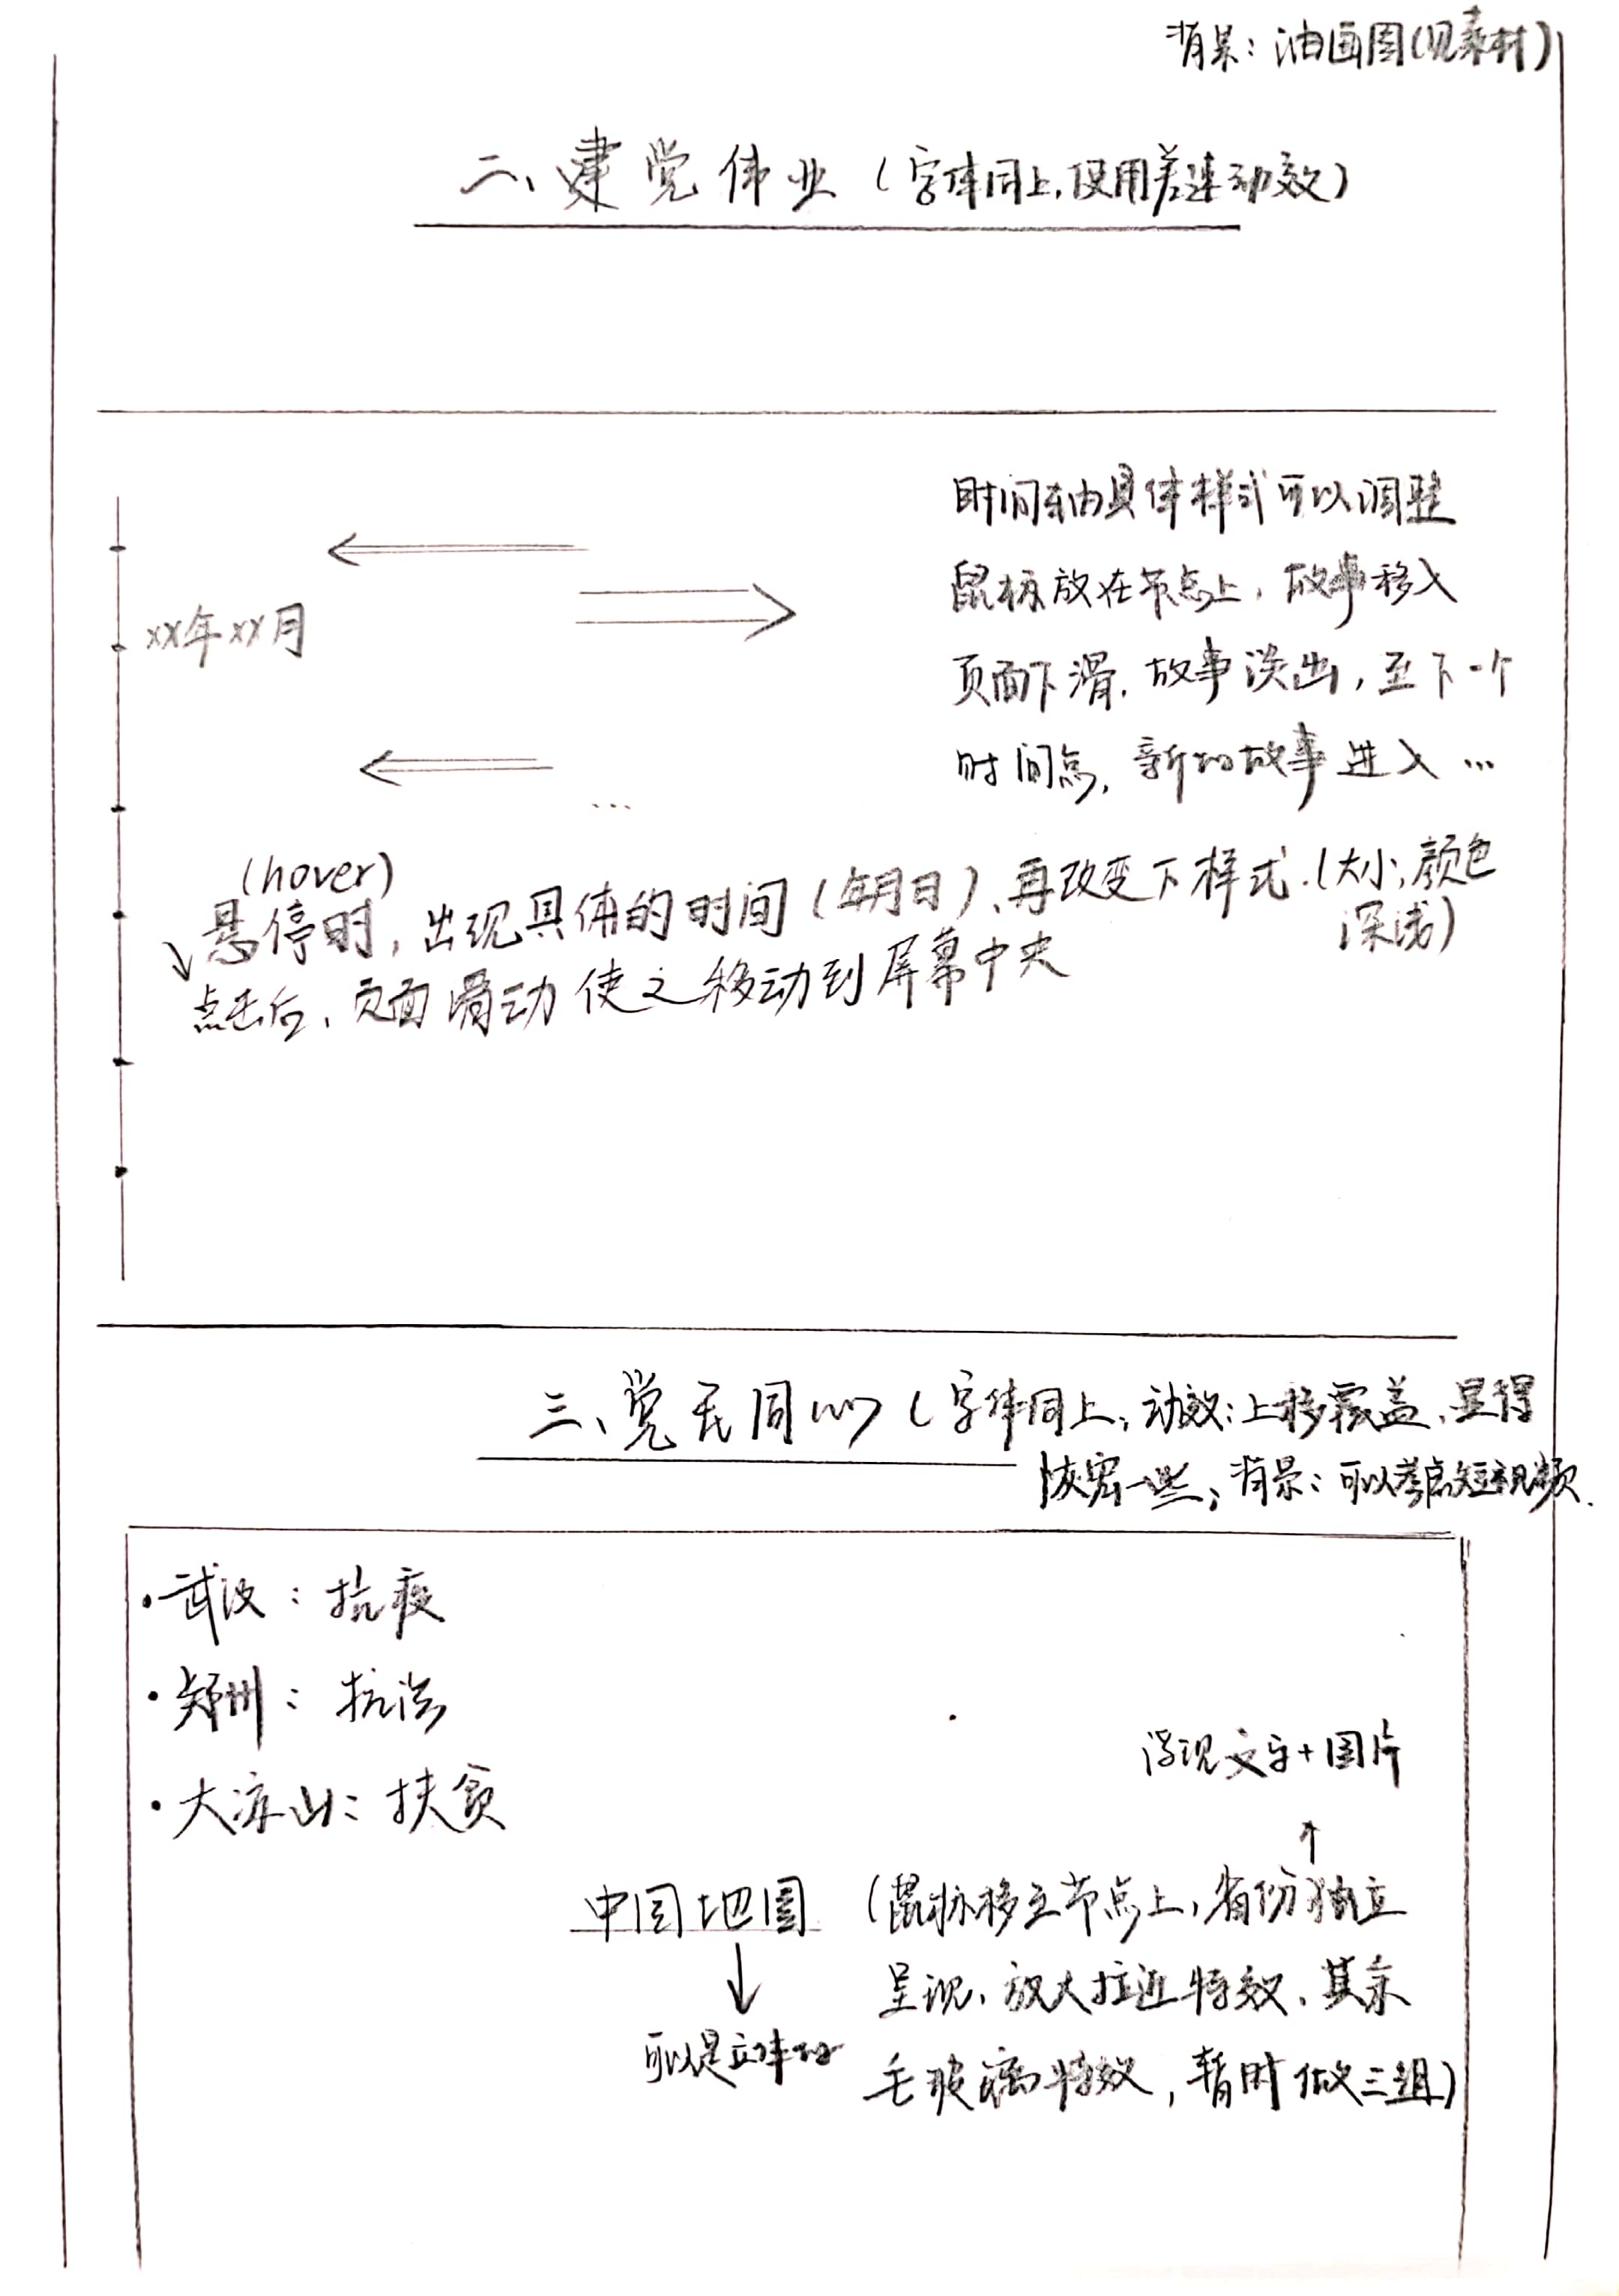 背景：油画图(见素材)
二、建党伟业（字体同上，使用差速动效）
时间轴具体样式可以调整
鼠标放在节点上，故事移入
xx年xx月
页面下滑，故事淡出，至下一个
时间点，新的故事进入…
…
(hover)
悬停时，出现具体的时间（年月日）、再改变下样式.(大小,颜色
深浅)
点击后、页面滑动使之移动到屏幕中央
三、党民同心（字体同上，动效：上移覆盖、显得
恢宏一些；背景：可以考虑短视频.
·武汉：抗疫
·郑州：抗洪
·大凉山：扶贫
浮现文字+图片
中国地图
(鼠标移至节点上，省份独立
呈现、放大拉近特效、其余
可以是立体的
毛玻璃特效，暂时做三组)